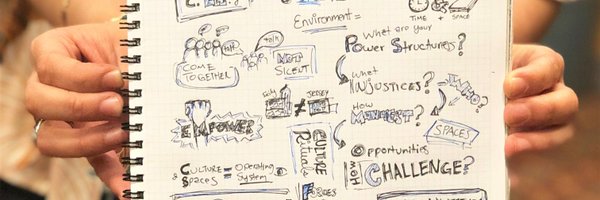 Environment =
TIME + SPACE
What are your
POWER STRUCTURES?
talk
talk
COME
TOGETHER
NOT
SILENT
What
INJUSTICES?
HOW
MANIFEST?
SPACES
≠
JERSEY
EMPOWER
CULTURE
Rituals
Opportunities
HOW CHALLENGE?
CULTURE = Operating
SPACES System